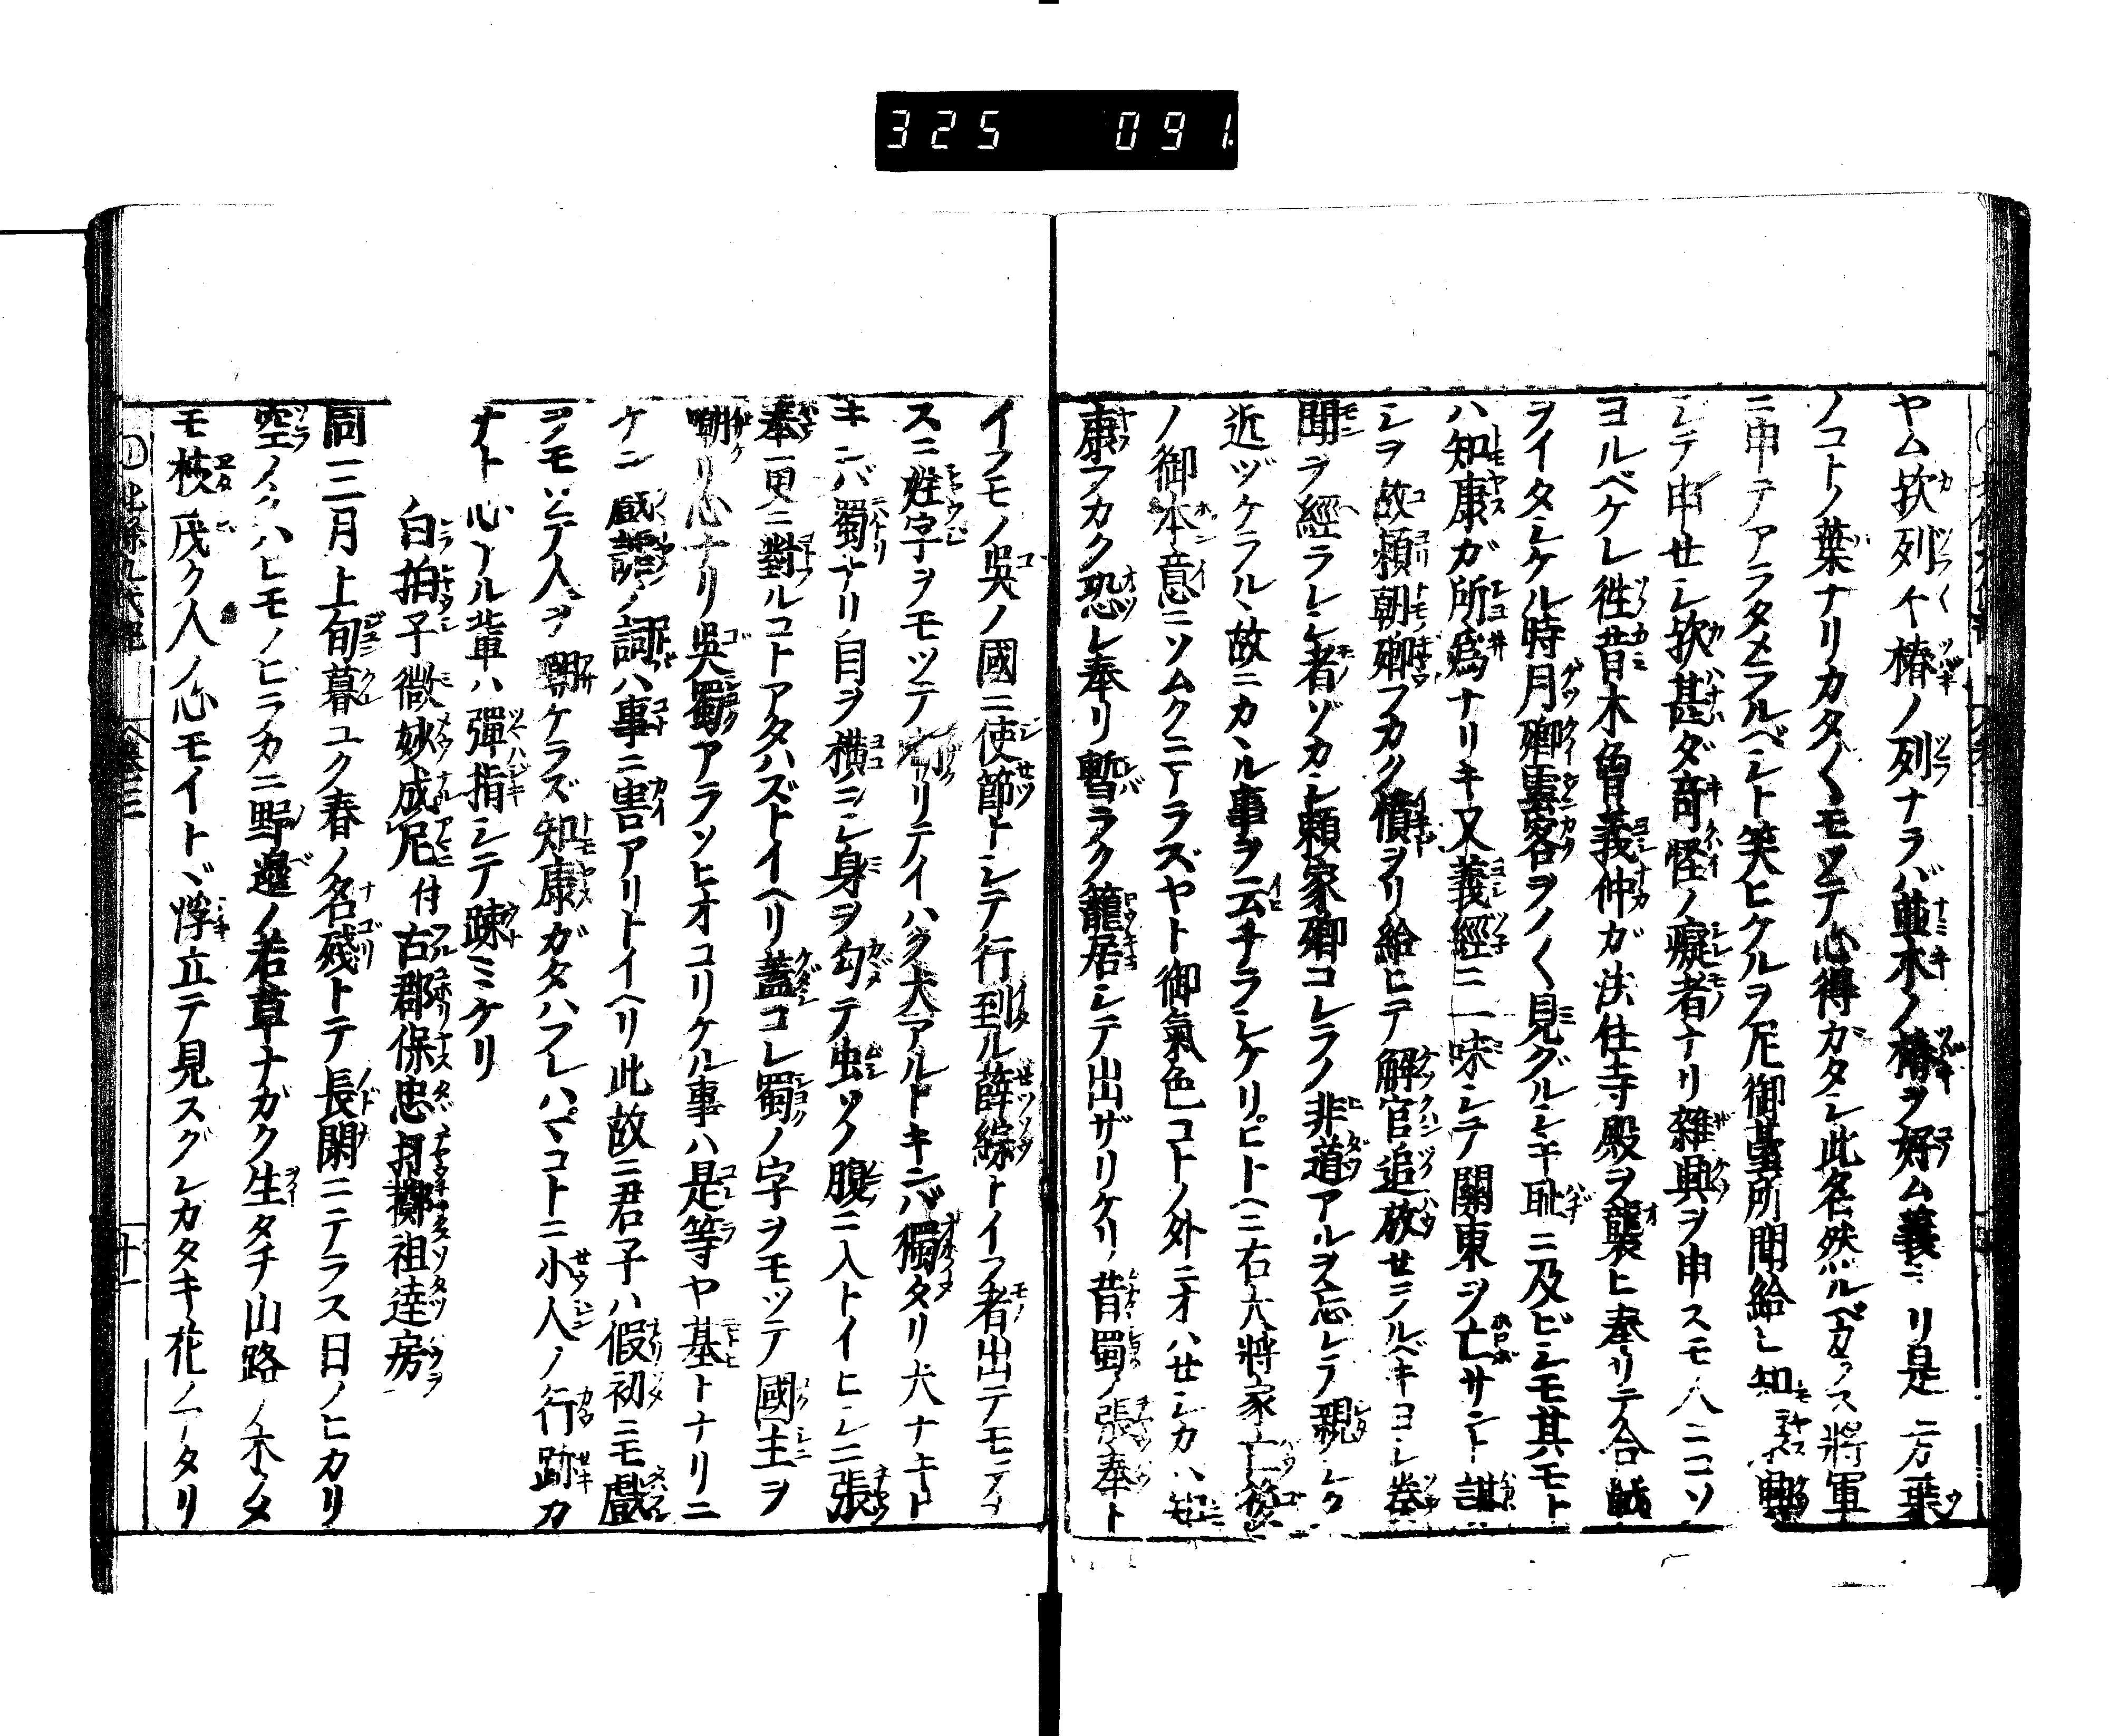 325 091
ヤム欤列々椿ノ列ナラバ並木ノ椿ヲ好ム義ニリ是万葉
ノコトノ葉ナリカタ〳〵モツテ心得ガタシ此名然ルベカラス將軍
ニ申テアラタメラルベシト笑ヒケルヲ尼御臺所聞給ヒ知
シテ申セシ欤甚ダ奇怪ノ癡者ナリ雜興ヲ申スモ人ニコソ
ヨルベケレ徃昔木曾義仲ガ法住寺殿ヲ襲ヒ奉リテ合戰
ヲイタシケル時月卿雲客ヲノ〳〵見グルシキ耻ニ及ビシモ其モト
ハ知康ガ所爲ナリキ又義經ニ一味シテ關東ヲ亡サント謀
シヲ故頼朝卿フカク憤ヲリ給ヒテ解官追放セラルベキヨシ巻
聞ヲ經ラレシ者ゾカシ頼家卿コレラノ非道アルヲ忘レテ親シク
近ヅケラルヽ故ニカヽル事ヲ云チラシケリヒトヘニ右大將家亡後
ノ御本意ニソムクニアラズヤト御氣色コトノ外ニオハセシカハ知
康フカク恐レ奉リ暫ラク籠居シテ出ザリケリ昔蜀ノ張奉ト
イフモノ呉ノ國ニ使節トシテ行到ル薛綜トイフ者出テモテナ
スニ姓字ヲモツテ嘲リテイハク犬アルトキンバ獨タリ犬ナキト
キンバ蜀ナリ目ヲ横ニシ身ヲ勾テ虫ソノ腹ニ入トイヒシニ張
奉更ニ對ルコトアタハズトイヘリ蓋コレ蜀ノ字ヲモツテ國主ヲ
嘲リ心ナリ呉蜀アラソヒオコリケル事ハ是等ヤ基トナリニ
ケン戯謔ノ詞ハ事ニ害アリトイヘリ此故ニ君子ハ假初ニモ戯
ヲモソテ人ヲ嘲ケラズ知康ガタハフレハマコトニ小人ノ行跡カ
ナト心アル輩ハ彈指シテ踈ミケリ
白拍子微妙成尼付古郡保忠打擲祖達房
同三月上旬暮ユク春ノ名殘トテ長閑ニテラス日ノヒカリ
空ノハレモノヒラカニ野邊ノ若草ナガク生タチ山路ノ木ノメ
モ枝茂ク人ノ心モイトヾ浮立テ見スグシカタキ花ノアタリ
北條九代記 巻三 十一